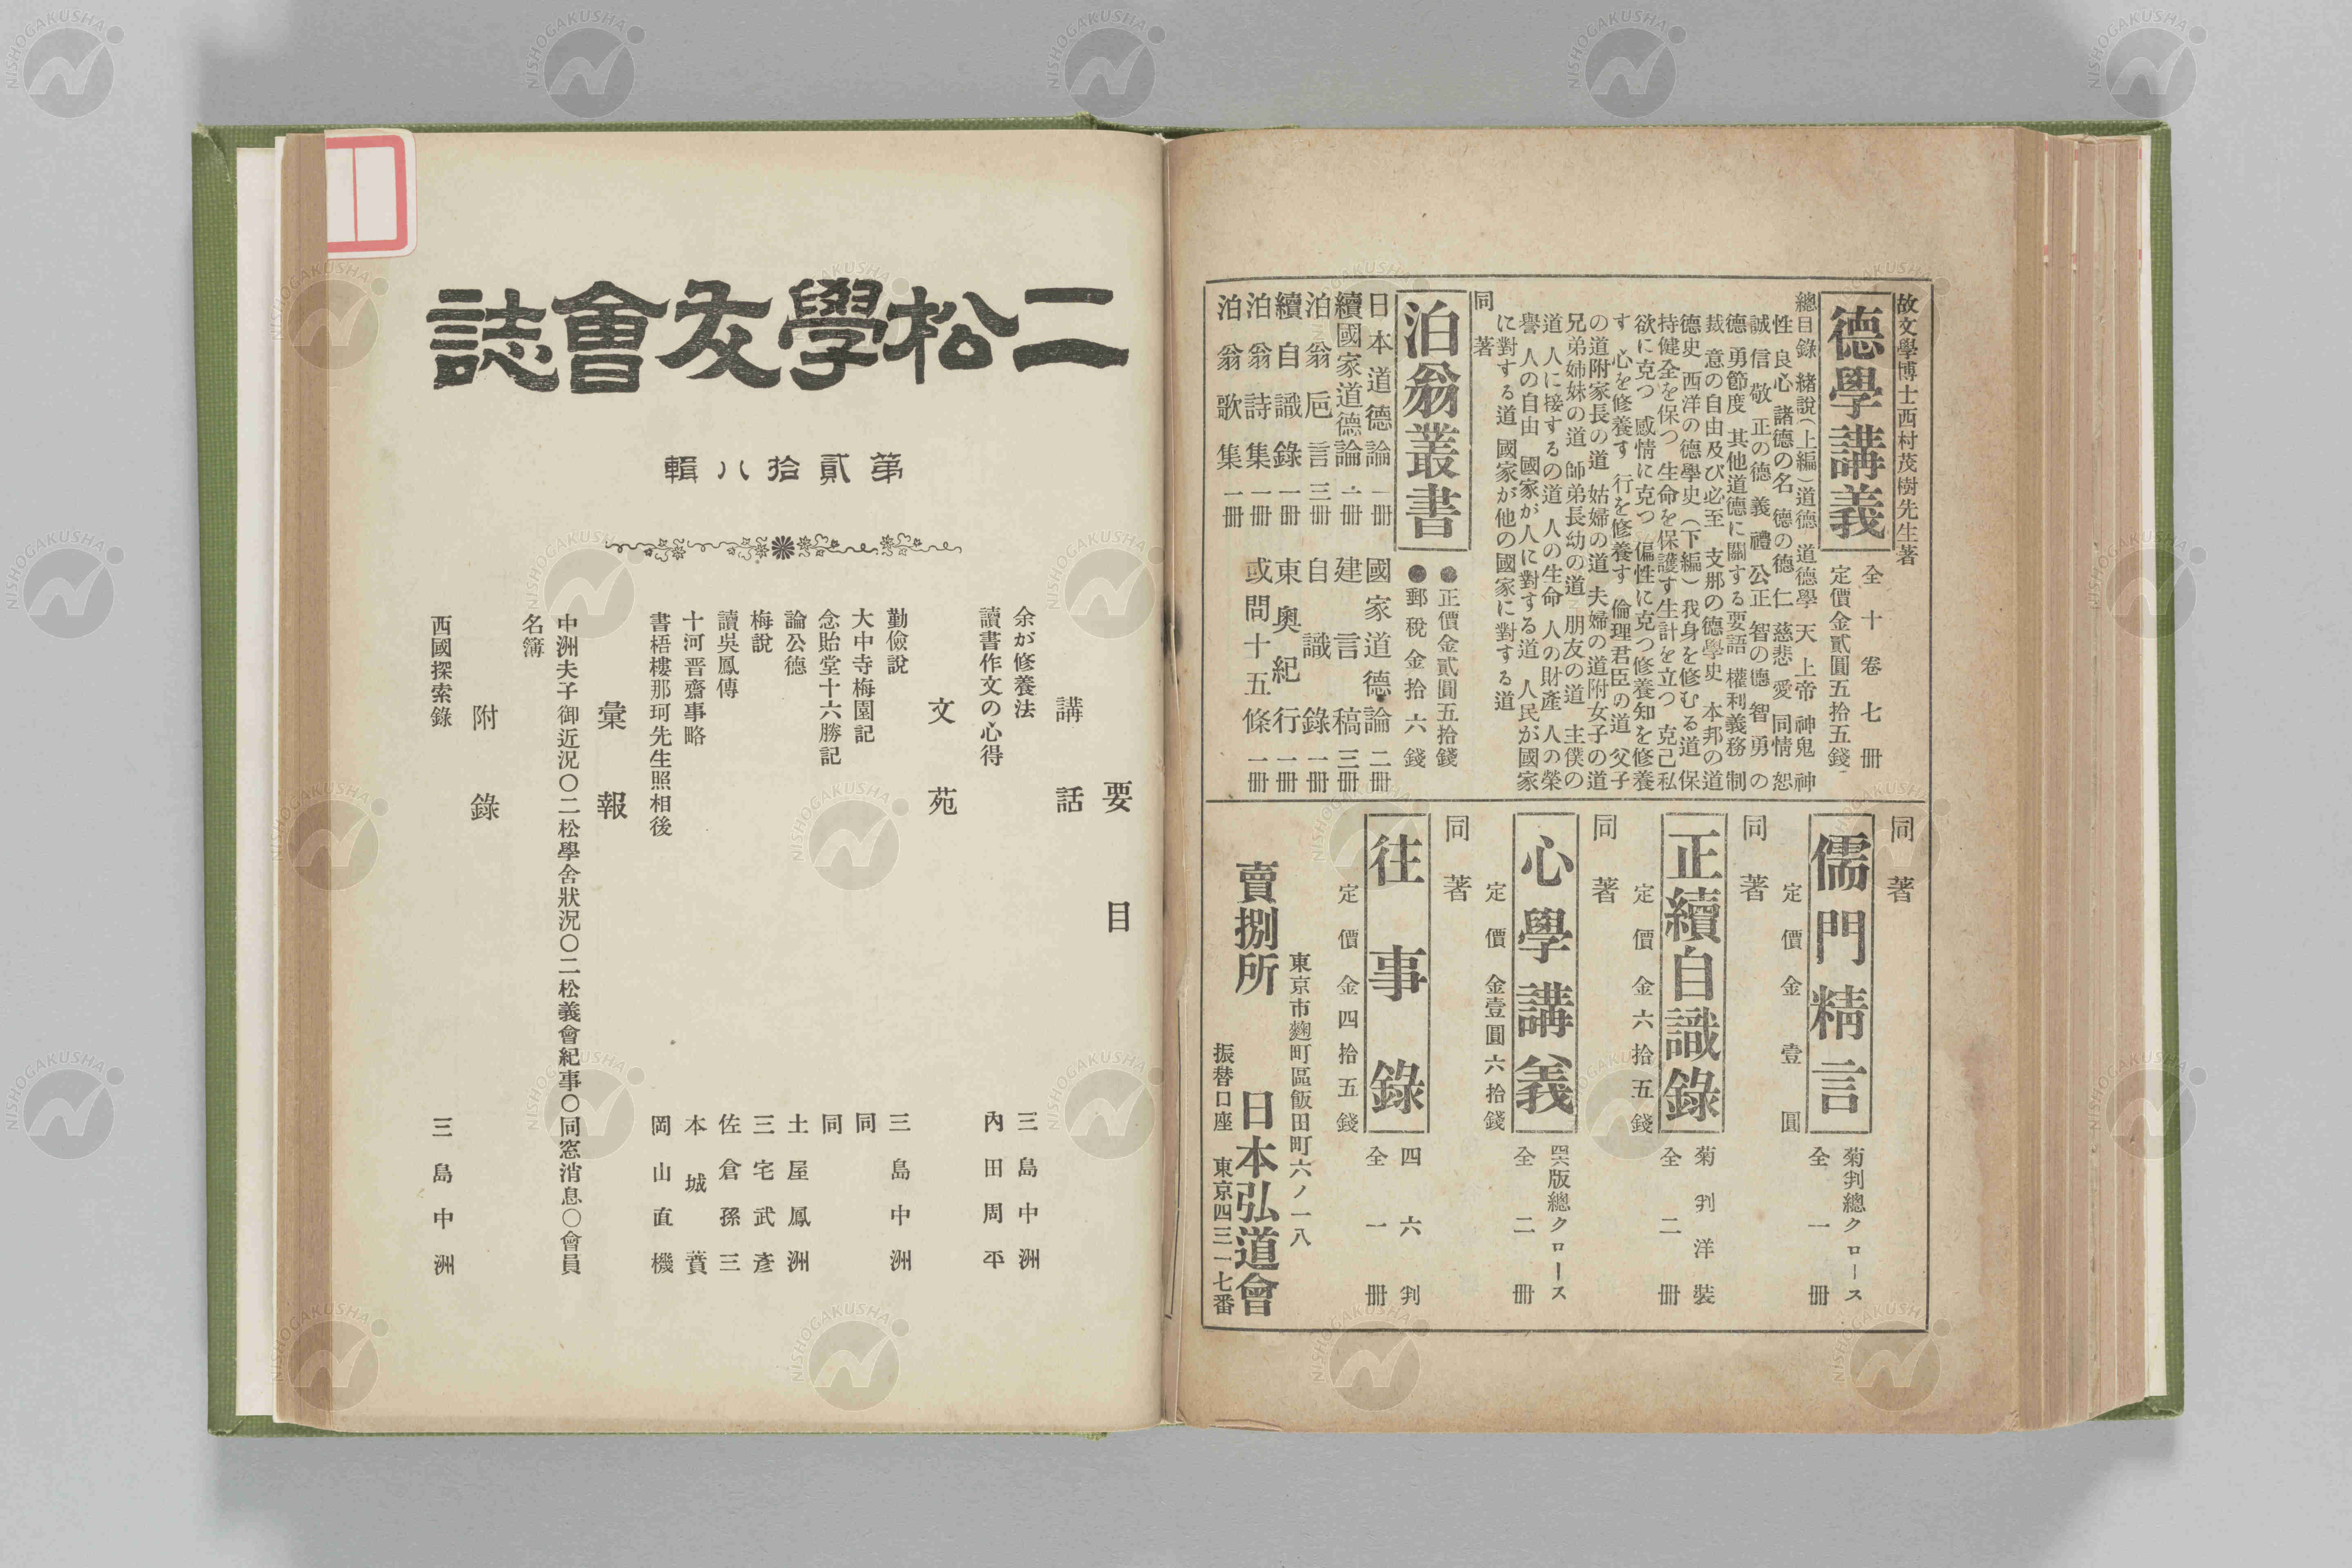 故文學博士西村茂樹先生著
德學講義
全十卷七冊
定價金貳圓五拾五錢
總目錄 緒說(上編)道德 道德學 天 上帝 神鬼 神
性 良心 諸德の名 德の德 仁 慈悲 愛 同情 恕
誠 信 敬 正の德 義 禮 公正 智の德 智 勇の
德 勇 節度 其他道德に關する要語 權利義務 制
裁 意の自由及び必至 支那の德學史 本邦の道
德史 西洋の德學史(下編)我身を修むる道 保
持健全を保つ 生命を保護す生計を立つ 克己私
欲に克つ 感情に克つ 偏性に克つ修養知を修養
す 心を修養す 行を修養す 倫理君臣の道 父子
の道附家長の道 姑婦の道 夫婦の道附女子の道
兄弟姉妹の道 師弟長幼の道 朋友の道 主僕の
道 人に接するの道 人の生命 人の財產 人の榮
譽 人の自由 國家が人に對する道 人民が國家
に對する道 國家が他の國家に對する道
同著
泊翁叢書
●正價金貳圓五拾錢
●郵稅金拾六錢
日本道德論 一冊 國家道德論 二冊
續國家道德論 一冊 建言稿 三冊
泊翁巵言 三冊 自識錄 一冊
續自識錄 一冊 東奧紀行 一冊
泊翁詩集 一冊 或問十五條 一冊
泊翁歌集 一冊
同著
儒門精言
菊判總クロース
全一冊
定價金壹圓
同著
正續自識錄
菊判洋裝
全二冊
定價金六拾五錢
同著
心學講義
四六版總クロース
全二冊
定價金壹圓六拾錢
同著
往事錄
四六判
全一冊
定價金四拾五錢
東京市麴町區飯田町六ノ一八
賣捌所 日本弘道會
振替口座 東京四三一七番
二松學友會誌
第貳拾八輯
要目
講話
余が修養法 三島中洲
讀書作文の心得 內田周平
文苑
勤儉說 三島中洲
大中寺梅園記 同
念貽堂十六勝記 同
論公德 土屋鳳洲
梅說 三宅武彥
讀吳鳳傳 佐倉孫三
十河晋齋事略 本城蕡
書梧樓那珂先生照相後 岡山直機
彙報
中洲夫子御近況〇二松學舍狀況〇二松義會紀事〇同窓消息〇會員
名簿
附錄
西國探索錄 三島中洲
NISHOGAKUSHA